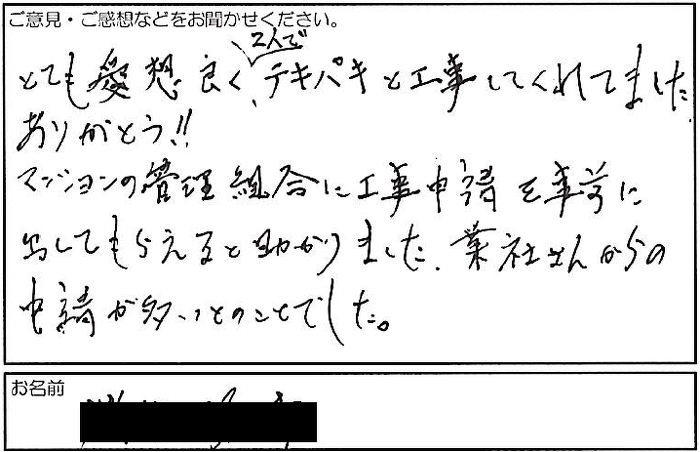 ご意見・ご感想などをお聞かせください。
とても愛想良く、2人でテキパキと工事してくれてました
ありがとう!!
マンションの管理組合に工事申請を事前に
出してもらえると助かりました。業社さんからの
申請が多いとのことでした。
お名前